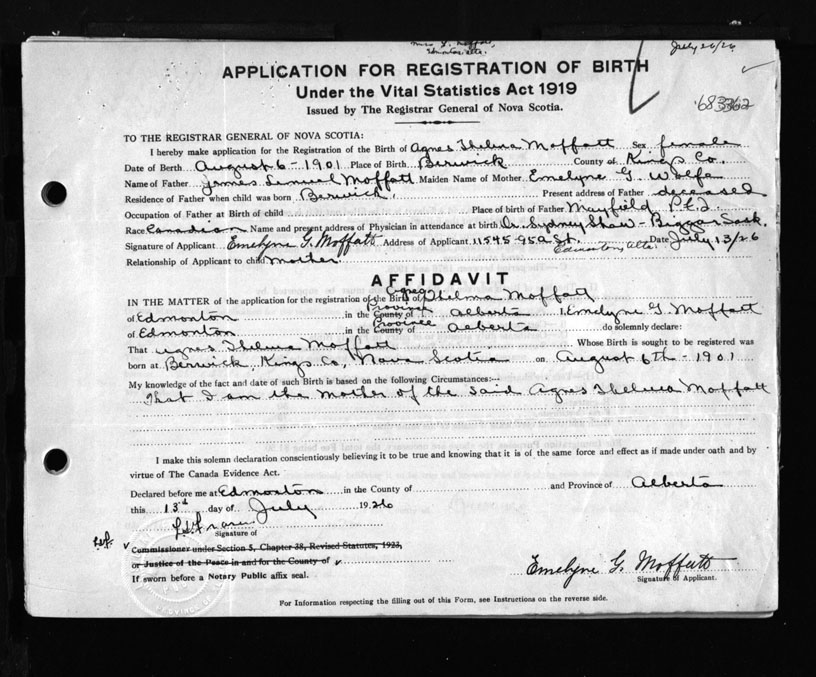 Mrs. G. Moffatt,
Edmonton, Alta.
July 26/26
APPLICATION FOR REGISTRATION OF BIRTH
Under the Vital Statistics Act 1919
Issued by The Registrar General of Nova Scotia.
683362
TO THE REGISTRAR GENERAL OF NOVA SCOTIA:
I hereby make application for the Registration of the Birth of Agnes Thelma Moffatt Sex female
Date of Birth August 6 - 1901 Place of Birth Berwick County of Kings Co.
Name of Father James Lemuel Moffatt Maiden Name of Mother Emelyne G. Wolfe
Residence of Father when child was born Berwick, Present address of Father deceased
Occupation of Father at Birth of child Place of birth of Father Mayfield P.E.I.
Race Canadian Name and present address of Physician in attendance at birth Dr. Sydney Shaw - Biggar Sask.
Signature of Applicant Emelyne G. Moffatt Address of Applicant 11545-95a St. Edmonton, Alta. Date July 13/26
Relationship of Applicant to child Mother
AFFIDAVIT
IN THE MATTER of the application for the registration of the Birth of Agnes Thelma Moffatt
of Edmonton in the County of Province Alberta I, Emelyne G. Moffatt
of Edmonton in the County of Province Alberta do solemnly declare:
That Agnes Thelma Moffatt Whose Birth is sought to be registered was
born at Berwick, Kings Co, Nova Scotia on August 6th - 1901
My knowledge of the fact and date of such Birth is based on the following Circumstances:—
That I am the Mother of the said Agnes Thelma Moffatt
I make this solemn declaration conscientiously believing it to be true and knowing that it is of the same force and effect as if made under oath and by
virtue of The Canada Evidence Act.
Declared before me at Edmonton in the County of and Province of Alberta
this 13th day of July 1926
Signature of
Commissioner under Section 5, Chapter 38, Revised Statutes, 1923,
or Justice of the Peace in and for the County of
If sworn before a Notary Public affix seal.
Emelyne G. Moffatt
Signature of Applicant.
For Information respecting the filling out of this Form, see Instructions on the reverse side.